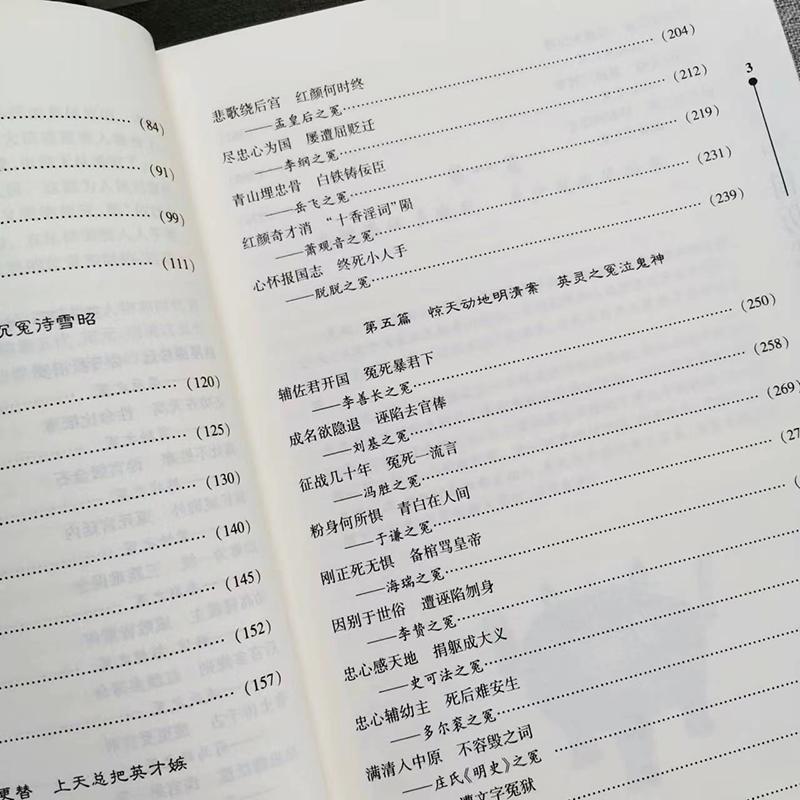 (84)
(91)
(99)
(111)
沉冤待雪昭
(120)
(125)
(130)
(140)
(145)
(152)
(157)
更替 上天总把英才嫉
3
悲歌绕后宫 红颜何时终
——孟皇后之冤……(204)
尽忠心为国 屡遭屈贬迁
——李纲之冤……(212)
青山埋忠骨 白铁铸佞臣
——岳飞之冤……(219)
红颜奇才消 “十香淫词”陨
——萧观音之冤……(231)
心怀报国志 终死小人手
——脱脱之冤……(239)
第五篇 惊天动地明清案 英灵之冤泣鬼神
辅佐君开国 冤死暴君下
——李善长之冤……(250)
成名欲隐退 诬陷去官俸
——刘基之冤……(258)
征战几十年 冤死一流言
——冯胜之冤……(269)
粉身何所惧 青白在人间
——于谦之冤……
刚正死无惧 备棺骂皇帝
——海瑞之冤……
因别于世俗 遭诬陷刎身
——李贽之冤……
忠心感天地 捐躯成大义
——史可法之冤……
忠心辅幼主 死后难安生
——多尔衮之冤……
满清人中原 不容毁之词
——庄氏《明史》之冤……
遭文字冤狱